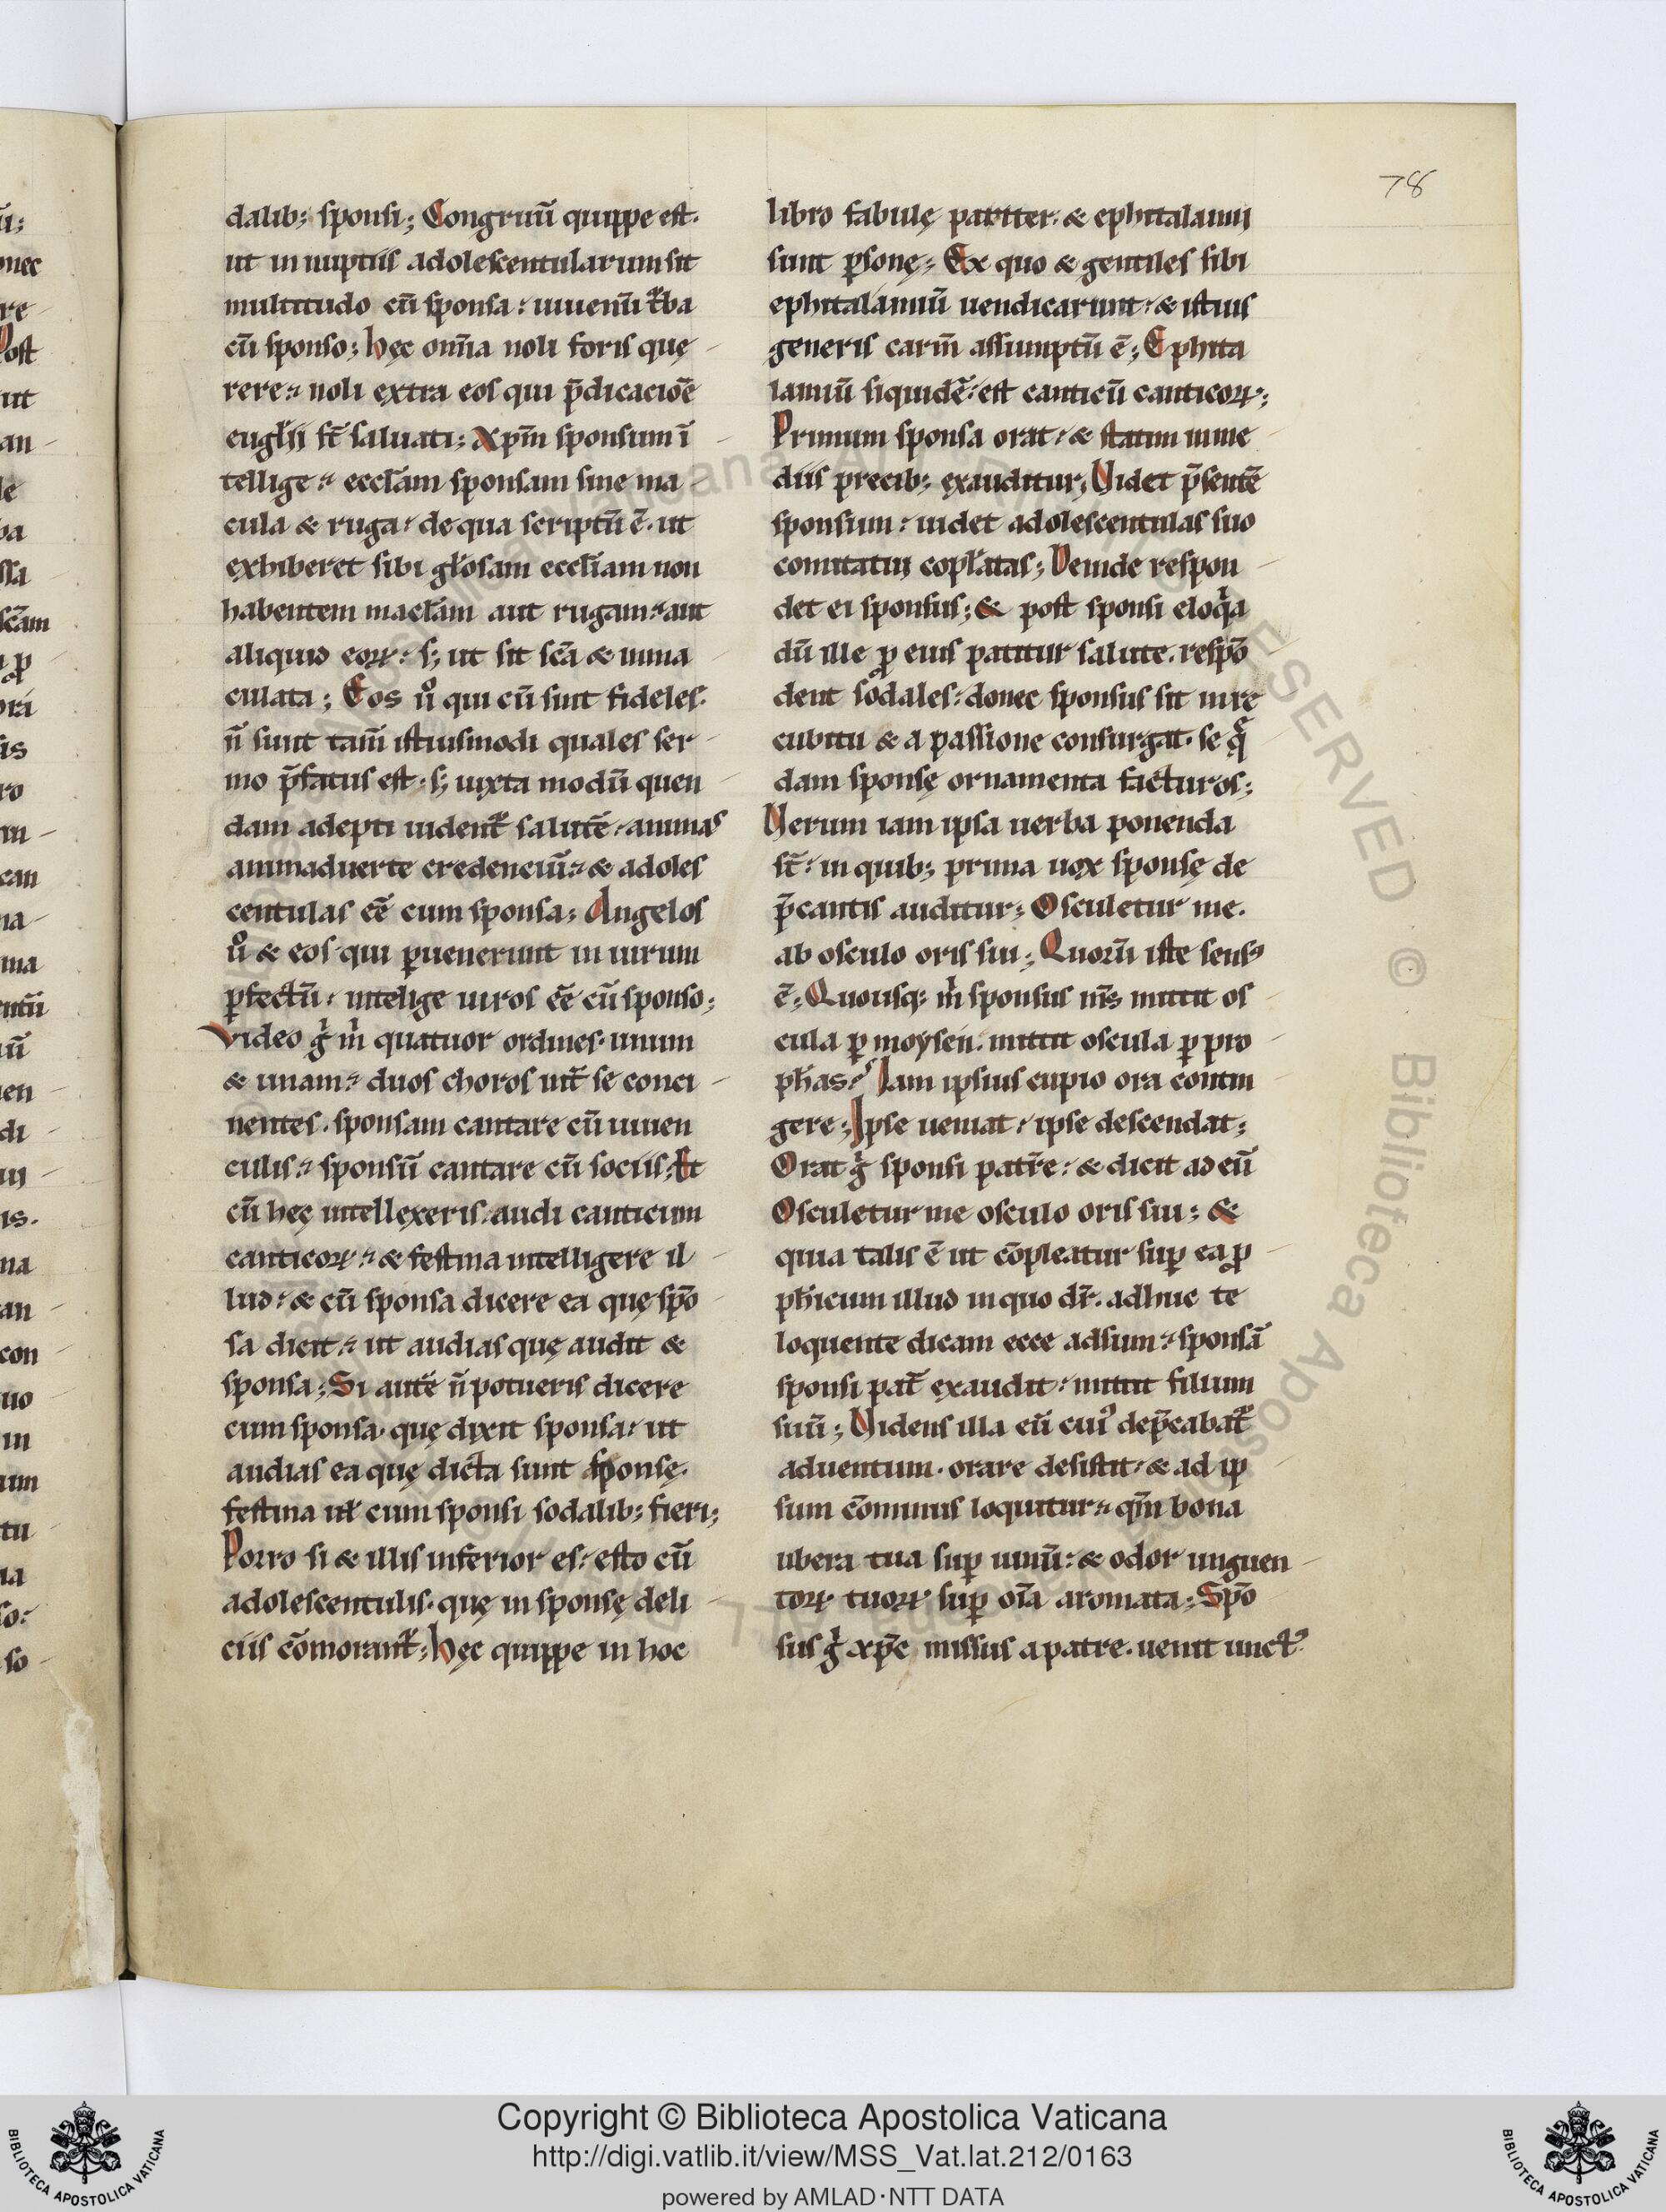 78
dalib; sponsi; Congruũ quippe est.
ut in nuptiis adolescentularum sit
multitudo cũ sponsa: iuuenũ t̃ba
cũ sponso; hęc om̃ia noli foris quę
rere: noli extra eos qui p̃dicaciõe
eugl̃ii st̃ saluati; Xpm̃ sponsum ĩ
tellige: eccl̃am sponsam sine ma
cula & ruga: de qua scriptũ ẽ. ut
exhiberet sibi gl̃osam eccl̃iam non
habentem macl̃am aut rugam: aut
aliquid eoꝝ: s; ut sit sc̃a & inma
culata; Eos ũo qui cũ sint fideles.
ñ sunt tam̃ istiusmodi quales ser
mo p̃fatus est. s; iuxta modũ quen
dam adepti uident̃ salutẽ: animas
animaduerte credenciũ: & adoles
centulas eẽ cum sponsa; Angelos
ũo & eos qui ꝑuenerunt in uirum
ꝑfectũ: intelige uiros eẽ cũ sponso;
Video g̊ m̊ quatuor ordines. unum
& unam: duos choros int̃ se conci
nentes. sponsam cantare cũ iuuen
culis: sponsũ cantare cũ sociis; Et
cũ hęc intellexeris. audi canticum
canticoꝝ: & festina intelligere il
lud: & cũ sponsa dicere ea quę spõ
sa dicit: ut audias quę audit &
sponsa; Si autẽ ñ potueris dicere
cum sponsa. quę dixit sponsa: ut
audias ea quę dicta sunt sponsę.
festina uł cum sponsi sodalib; fieri;
Porro si & illis inferior es: esto cũ
adolescentulis. quę in sponsę deli
ciis cõmorant̃; hęc quippe in hoc
libro fabulę pariter. & ephitalamij
sunt ꝑsonę; Ex quo & gentiles sibi
ephitalamiũ uendicarunt: & istius
generis carm̃ assumptũ ẽ; Ephita
lamiũ siquidẽ: est canticũ canticoꝝ;
Primum sponsa orat: & statim inme
diis precib; exauditur; Videt p̃sentẽ
sponsum: uidet adolescentulas suo
comitatui copl̃atas; Deinde respon
det ei sponsus; & post sponsi eloq̃a
dũ ille ꝓ eius patitur salute. respõ
dent sodales: donec sponsus sit in re
cubitu & a passione consurgat. se q̃
dam sponsę ornamenta facturos;
Verum iam ipsa uerba ponenda
st̃: in quib; prima uox sponsę de
p̃cantis auditur; Osculetur me.
ab osculo oris sui; Quorũ iste sensꝰ
ẽ; Quousq; m̊ sponsus nr̃s mittit os
cula ꝑ moysen: mittit oscula ꝑ pro
ph̃as? Iam ipsius cupio ora contin
gere; Ipse ueniat: ipse descendat;
Orat g̊ sponsi patr̃e: & dicit ad eũ
Osculetur me osculo oris sui; &
quia talis ẽ ut cõpleatur suꝑ ea ꝓ
ph̃icum illud in quo dr̃. adhuc te
loquente dicam ecce adsum: sponsã
sponsi pat̃ exaudit: mittit filium
suũ; Videns illa eũ cuiꝰ dep̃cabat̃
aduentum. orare desistit: & ad ip
sum cõminus loquitur: qm̃ bona
ubera tua suꝑ uinũ: & odor unguen
toꝝ tuoꝝ suꝑ oĩa aromata; Spõ
sus g̊ xp̃c missus a patre. uenit unctꝰ
Copyright © Biblioteca Apostolica Vaticana
http://digi.vatlib.it/view/MSS_Vat.lat.212/0163
powered by AMLAD·NTT DATA
BIBLIOTECA APOSTOLICA VATICANA
BIBLIOTECA APOSTOLICA VATICANA